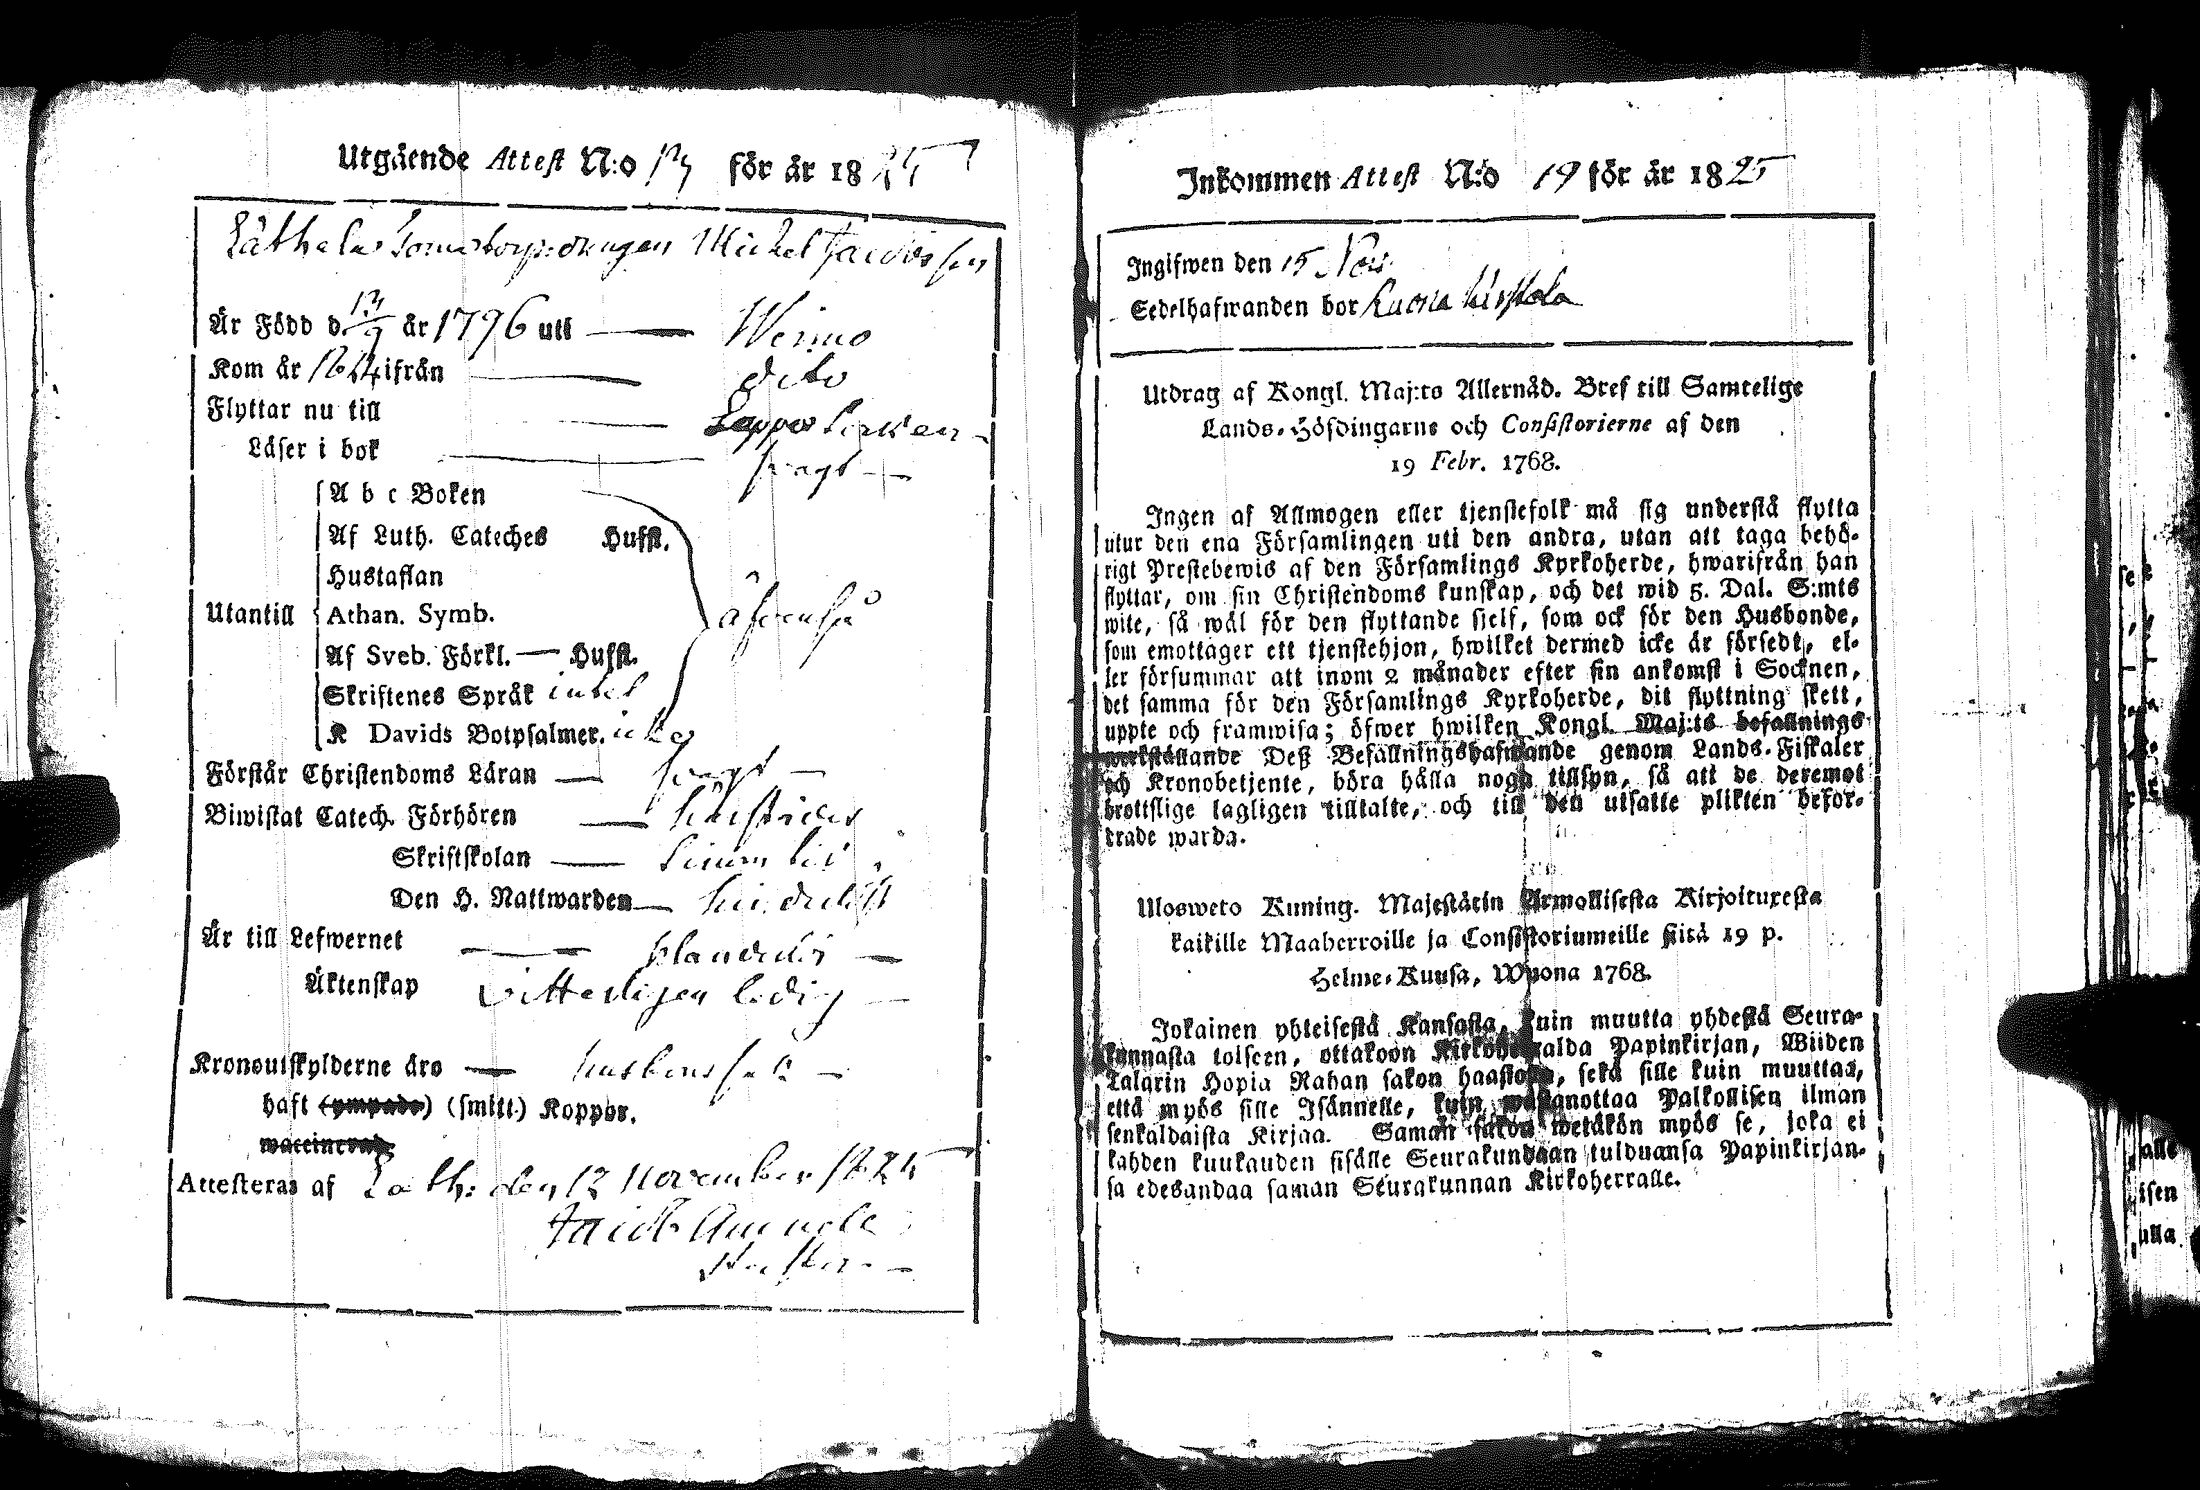 Utgående Attest N:o 13 för år 1825
Michel Jacobsson
Är Född d. 13/9 år 1796 uti Wemo
Kom år ifrån dito
Flyttar nu till Lappo Socken
Läser i bok svagt
A b c Boken
Af Luth. Cateches Hufst.
Hustaflan
Utantill Athan. Symb. äfvenså
Af Sveb. Förkl. Hufst.
Skriftenes Språk intet
K Davids Botpsalmer. icke
Förstår Christendoms Läran svagt
Biwistat Catech. Förhören
Skriftskolan
Den H. Nattwarden
Är till Lefwernet
Äktenskap witterligen ledig
Kronoutskylderne äro
haft (ympade) (smitt.) Koppor.
Attesteras af den 12 November 1825
Jacob
Inkommen Attest N:o 19 för år 1825
Ingifwen den 15 Nov.
Sedelhafwanden bor
Utdrag af Kongl. Maj:ts Allernåd. Bref till Samtelige
Lands-Höfdingarne och Consistorierne af den
19 Febr. 1768.
Ingen af Allmogen eller tjenstefolk må sig understå flytta
utur den ena Församlingen uti den andra, utan att taga behö-
rigt Prestebewis af den Församlings Kyrkoherde, hwarifrån han
flyttar, om sin Christendoms kunskap, och det wid 5. Dal. S:mts
wite, så wäl för den flyttande sielf, som ock för den Husbonde,
som emottager ett tjenstehjon, hwilket dermed icke är försedt, el-
ler försummar att inom 2 månader efter sin ankomst i Socknen,
det samma för den Församlings Kyrkoherde, dit flyttning skett,
uppte och framwisa; öfwer hwilken Kongl. Maj:ts befallnings
werkställande Deß Befällningshafwande genom Lands-Fiskaler
och Kronobetjente, böra hålla noga tillsyn, så att de deremot
brottslige lagligen tilltalte, och till den utsatte plikten befor-
drade warda.
Ulosweto Kuning. Majestätin Armollisesta Kirjoituxesta
kaikille Maaherroille ja Consistoriumeille siitä 19 p.
Helme-Kuusa, Wuona 1768.
Jokainen yhteisestä Kansasta, kuin muutta yhdestä Seura-
kunnasta toiseen, ottakoon Kirkoherralda Papinkirjan, Wiiden
Talarin Hopia Rahan sakon haastolla, sekä sille kuin muuttaa,
että myös sille Isännelle, kuin wastanottaa Palkollisen ilman
senkaldaista Kirjaa. Saman sakon wetäkön myös se, joka ei
kahden kuukauden sisälle Seurakundaan tulduansa Papinkirjan-
sa edesandaa saman Seurakunnan Kirkoherralle.
alle
isen
ulla